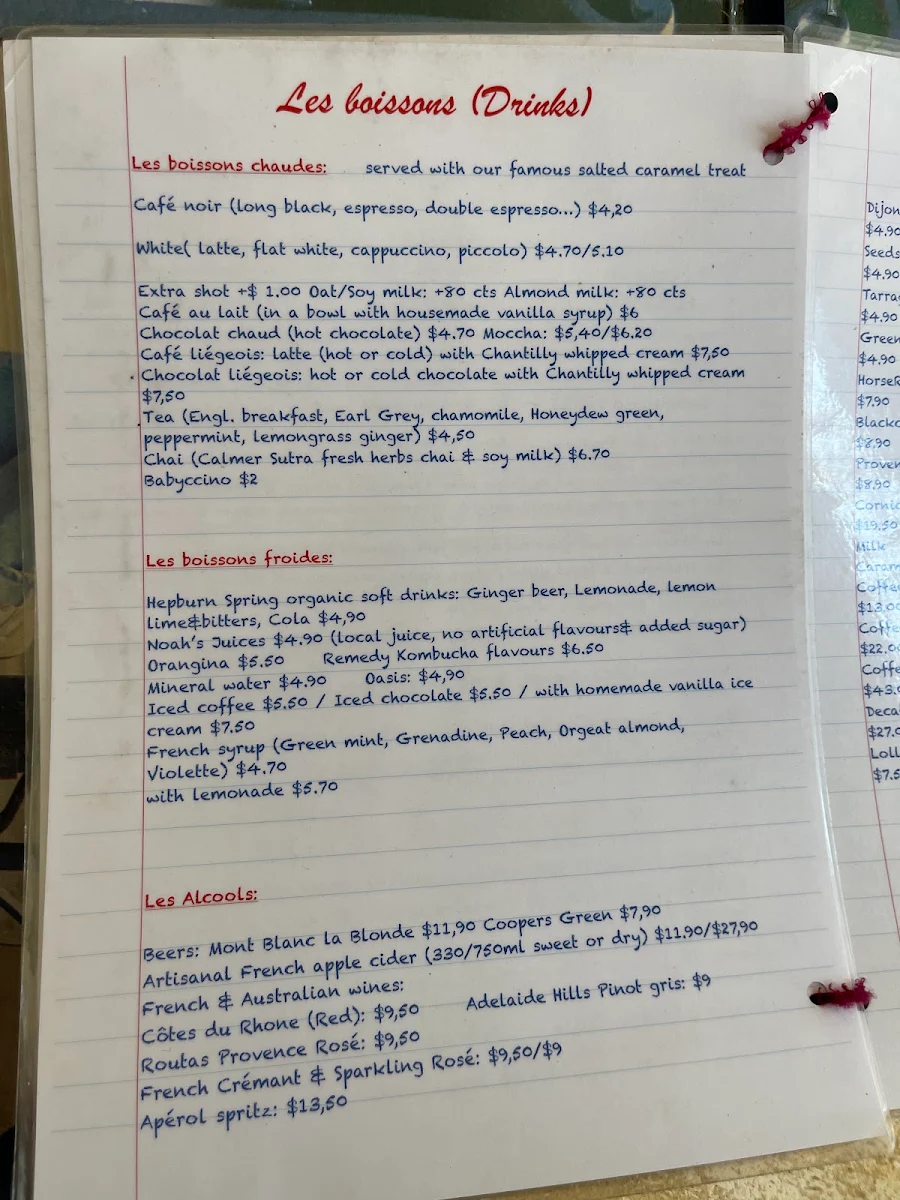 Les boissons (Drinks)
Les boissons chaudes: served with our famous salted caramel treat
Café noir (long black, espresso, double espresso...) $4,20
White( latte, flat white, cappuccino, piccolo) $4.70/5.10
Extra shot +$ 1.00 Oat/Soy milk: +80 cts Almond milk: +80 cts
Café au lait (in a bowl with housemade vanilla syrup) $6
Chocolat chaud (hot chocolate) $4.70 Moccha: $5,40/$6.20
Café liégeois: latte (hot or cold) with Chantilly whipped cream $7,50
Chocolat liégeois: hot or cold chocolate with Chantilly whipped cream
$7,50
Tea (Engl. breakfast, Earl Grey, chamomile, Honeydew green,
peppermint, lemongrass ginger) $4,50
Chai (Calmer Sutra fresh herbs chai & soy milk) $6.70
Babyccino $2
Les boissons froides:
Hepburn Spring organic soft drinks: Ginger beer, Lemonade, lemon
lime&bitters, Cola $4,90
Noah's Juices $4.90 (local juice, no artificial flavours& added sugar)
Orangina $5.50 Remedy Kombucha flavours $6.50
Mineral water $4.90 Oasis: $4,90
Iced coffee $5.50 / Iced chocolate $5.50 / with homemade vanilla ice
cream $7.50
French syrup (Green mint, Grenadine, Peach, Orgeat almond,
Violette) $4.70
with lemonade $5.70
Les Alcools:
Beers: Mont Blanc la Blonde $11,90 Coopers Green $7,90
Artisanal French apple cider (330/750ml sweet or dry) $11.90/$27,90
French & Australian wines:
Côtes du Rhone (Red): $9,50 Adelaide Hills Pinot gris: $9
Routas Provence Rosé: $9,50
French Crémant & Sparkling Rosé: $9,50/$9
Apérol spritz: $13,50
Dijon
$4.90
Seeds
$4.90
$4.90
Green
$4.90
$7.90
$8.90
$8.90
$19.50
Milk